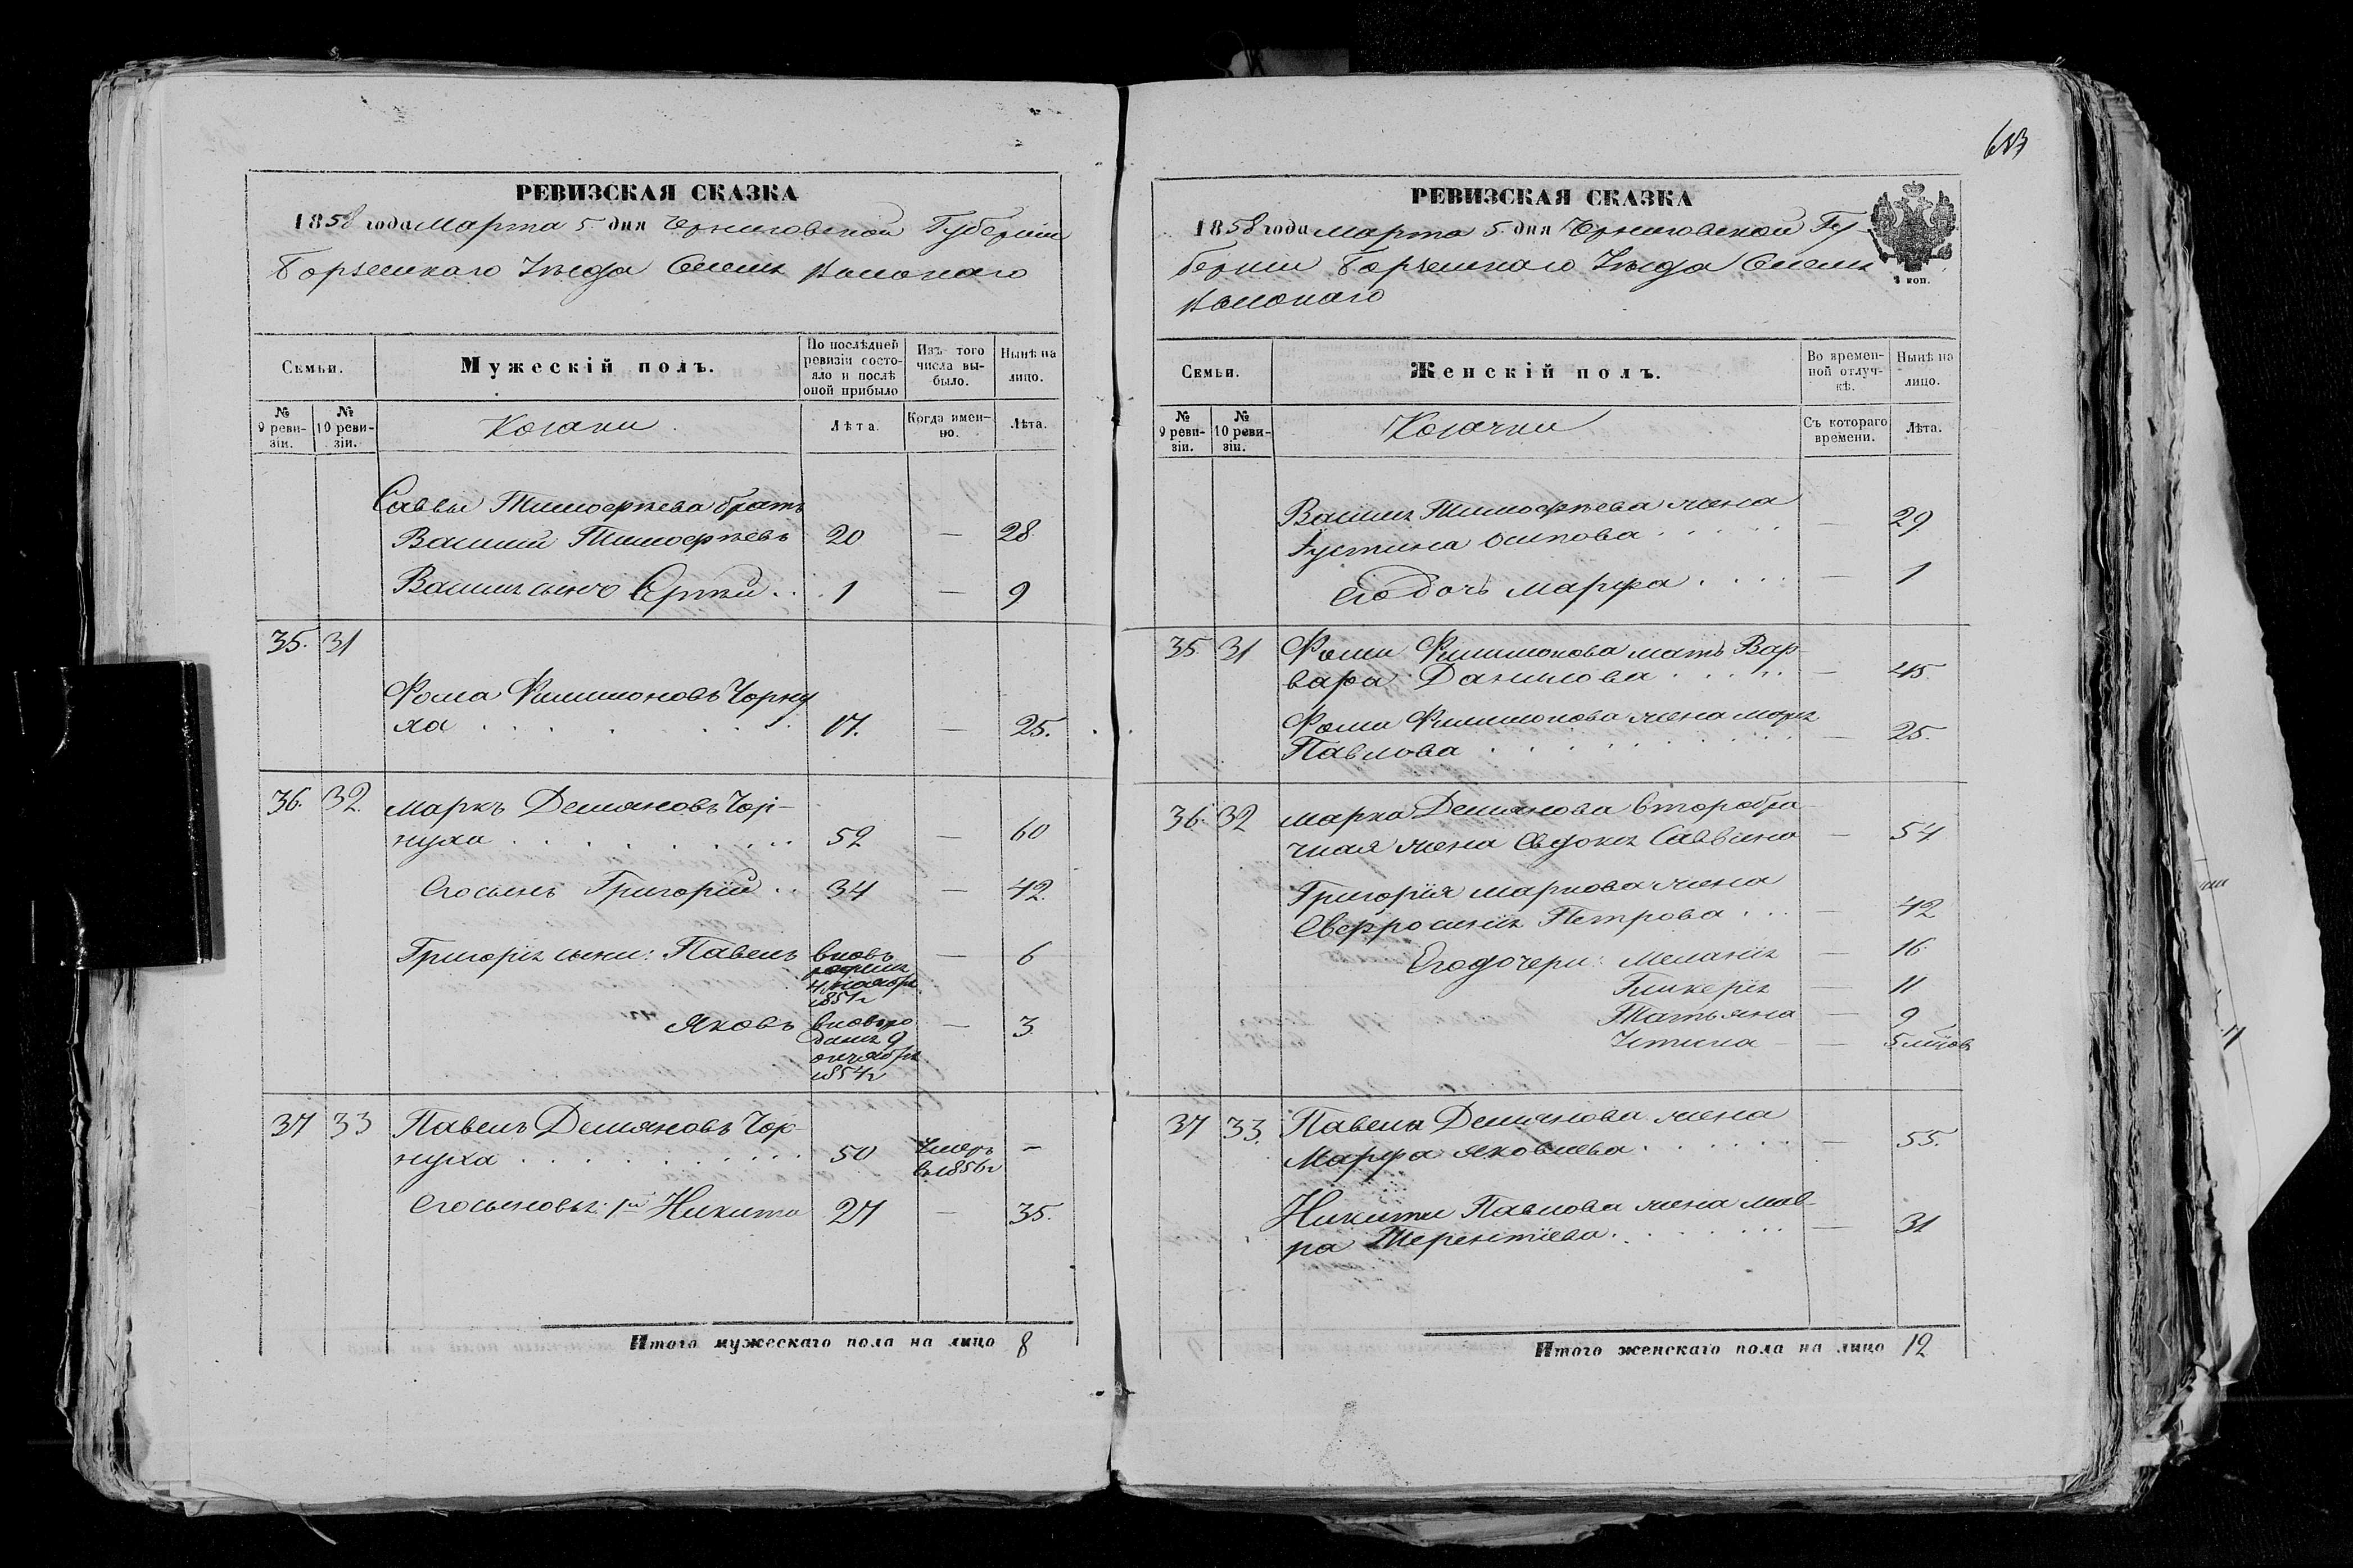 683
РЕВИЗСКАЯ СКАЗКА
1858 года Марта 5 дня Черниговской Губернии
Борзенскаго Уезда Села
Семьи.
Мужескій полъ.
По послѣдней ревизіи состояло и послѣ оной прибыло
Изъ того числа выбыло.
Нынѣ на лицо.
№ 9 ревизіи.
№ 10 ревизіи.
Козаки
Лѣта.
Когда именно.
Лѣта.
Саввы Тимофѣева братъ
Василий Тимофѣевъ 20 — 28
Василія сынъ .. 1 — 9
35. 31
Фома Филимоновъ Чорну
ха . . . . . . . 17. — 25.
36. 32. Маркъ Демяновъ Чор-
нуха . . . . . . . . . . 52 — 60
Его сынъ Григорій .. 34 — 42.
Григорія сыны: Павелъ вновь — 6
рожденъ
4 Ноября
1851 г
Яковъ вновь ро — 3.
жденъ 9
октября
1854 г
37 33 Павелъ Демяновъ Чор-
нуха . . . . . . . . . . 50 Умеръ —
в 1856 г
Его сыновья: 1й Никита 27 — 35.
Итого мужескаго пола на лицо 8
РЕВИЗСКАЯ СКАЗКА
1858 года Марта 5 дня Черниговской Гу-
берніи Борзенскаго Уезда Села
3 коп.
Семьи.
Женскій полъ.
Во временной отлучкѣ.
Нынѣ на лицо.
№ 9 ревизіи.
№ 10 ревизіи.
Козачки
Съ котораго времени.
Лѣта.
Василія Тимофѣева жена
Густина Осипова . . . . . — 29
Его дочь Марфа . . . . — 1
35. 31 Фомы Филимонова мать Вар-
вара Данилова . . . . . — 45.
Фомы Филимонова жена Марія
Павлова . . . . . . . . . — 25.
36. 32 Марка Демянова второбра-
чная жена Евдокія Саввина — 54
Григорія Маркова жена
Евфросинія Петрова . . . — 42
Его дочери: Меланія — 16
Гликерія — 11
Татьяна — 9
Устина — — 5 місяцов
37 33. Павела Демянова жена
Марфа Яковлева . . . . . . — 55.
Никиты Павлова жена Мав-
ра Терентіева . . . . . . . — 31
Итого женскаго пола на лицо 12